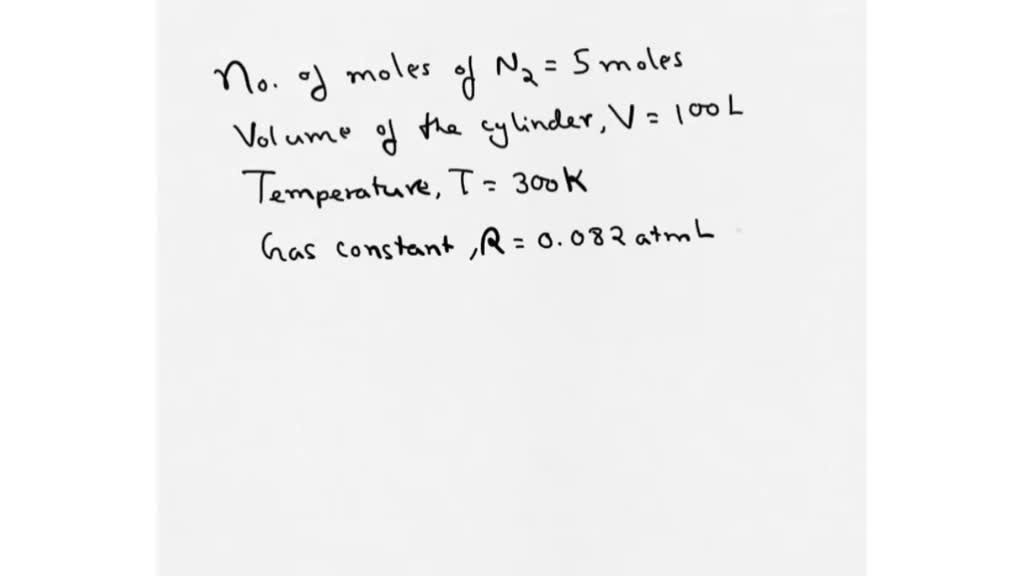 No. of moles of N₂ = 5 moles
Volume of the cylinder, V = 100 L
Temperature, T = 300 K
Gas constant, R = 0.082 atm L